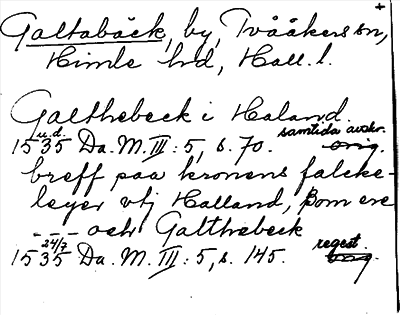 Galtabäck, by, Tvååkers sn, +
Himle hd, Hall. l.
Galthebeck i Haland.
15 u.d. 35 Da. M. III: 5, s. 70. samtida avskr. orig.
breff paa kronens falcke-
leyer vtj Halland, som ere
--- och Galthebeck
15 24/7 35 Da. M. III: 5, s. 145. regest. orig.